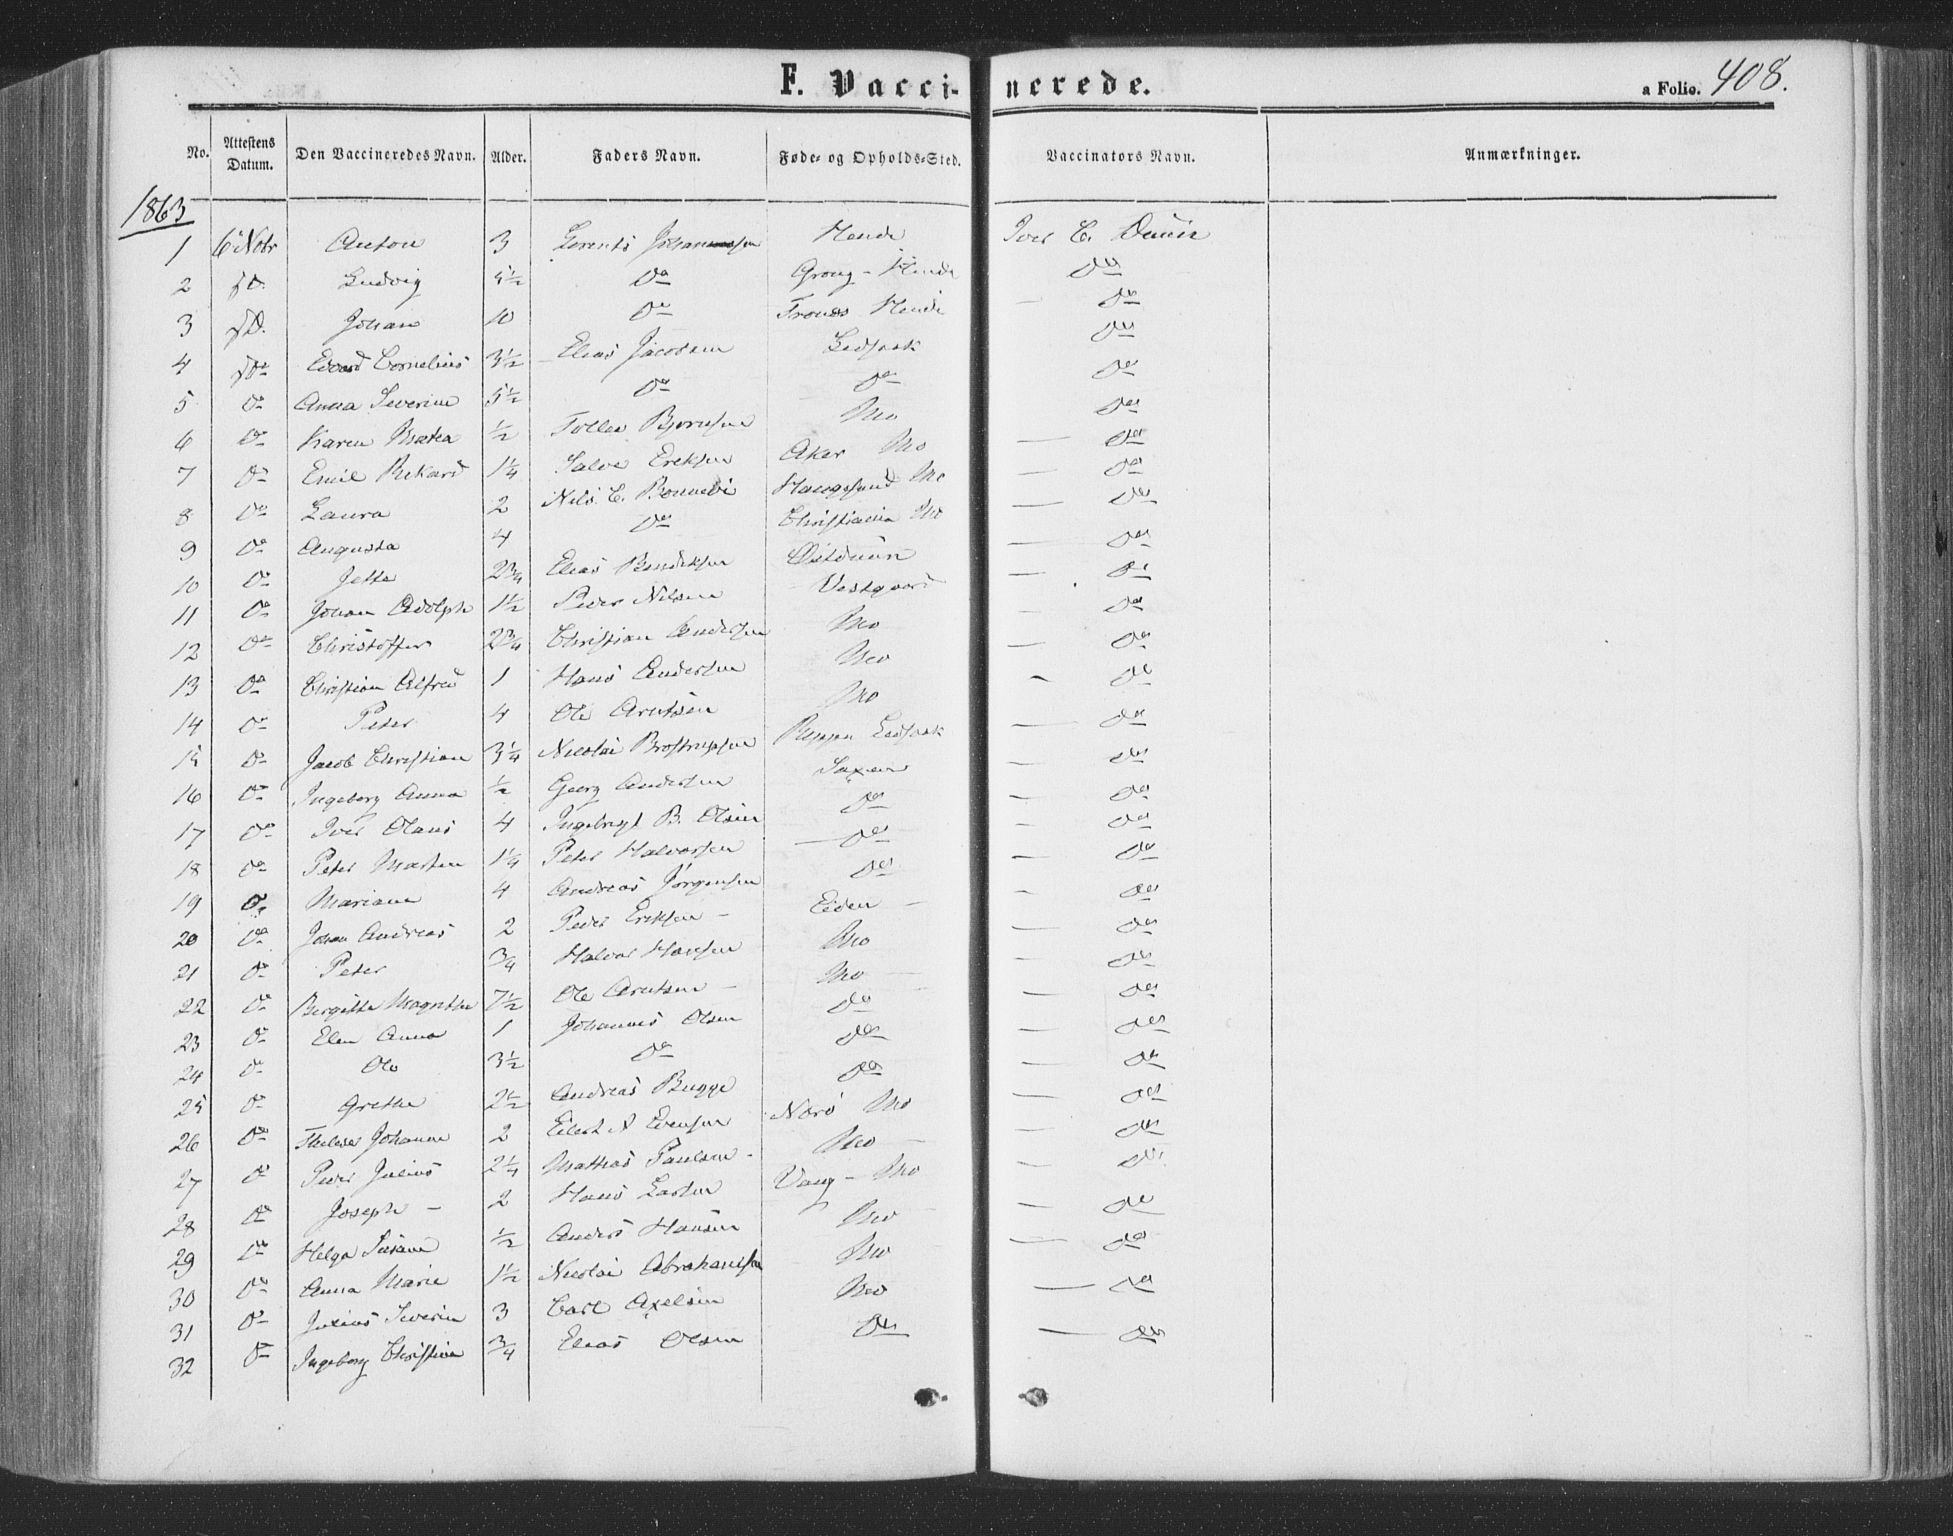 F. Vaccinerede.
a Folio. 408.
No. Attestens Datum. Den Vaccineredes Navn. Alder. Faders Navn. Føde- og Opholds-Sted. Vaccinators Navn. Anmærkninger.
1863
1 6 Nobr Anton 3 Lorents Johannessen Iver C.
2 do. Ludvig 5½ Do Do
3 do. Johan 10 Do Do
4 do Edvard Cornelius 3½ Elias Jacobsen Do
5 Do Anna Severine 5½ Do Do Do
6 Do Karen Matea ½ Bjørnsen Mo Do
7 Do Emil Rikard 1¼ Salve Eriksen Aker Mo Do
8 Do Laura 2 Nils C. Bonnevi Mo Do
9 Do Augusta 4 Do Christiania Mo Do
10 Do Jette 2¾ Elias Bendiksen Do
11 Do Johan Adolph 1½ Peder Nilsen Vestgaard Do
12 Do Christoffer 2¾ Christian Andersen Mo Do
13 Do Christian Alfred 1 Hans Andersen Mo Do
14 Do Peter 4 Ole Arntsen Mo Do
15 Do Jacob Christian 3¼ Nicolai Brostrupsen Do
16 Do Ingeborg Anna ½ Georg Andersen Saxen Do
17 Do Iver Olaus 4 Ingebrigt B. Olsen Do Do
18 Do Peter Morten 1¼ Peter Halvorsen Do Do
19 Do Mariane 4 Andreas Jörgensen Do Do
20 Do Johan Andreas 2 Peder Eriksen Eiden Do
21 Do Peter ¾ Halvor Hansen Mo Do
22 Do Bergitte Magrethe 7½ Ole Arntsen Mo Do
23 Do Elen Anna 1 Johannes Olsen Do Do
24 Do Ole 3½ Do Do Do
25 Do Grethe 2½ Andreas Bugge Do Do
26 Do Johanne 2 Eilert A Evensen Nærö Mo Do
27 Do Peder Julius 2¼ Mathias Paulsen Mo Do
28 Do Joseph 2 Hans Larsen Vang Mo Do
29 Do Helga Susane ½ Anders Hansen Mo Do
30 Do Anna Marie 1½ Nicolai Abrahamsen Mo Do
31 Do Julius Severin 3 Carl Axelsen Mo Do
32 Do Ingeborg Christine ¾ Elias Olsen Do Do